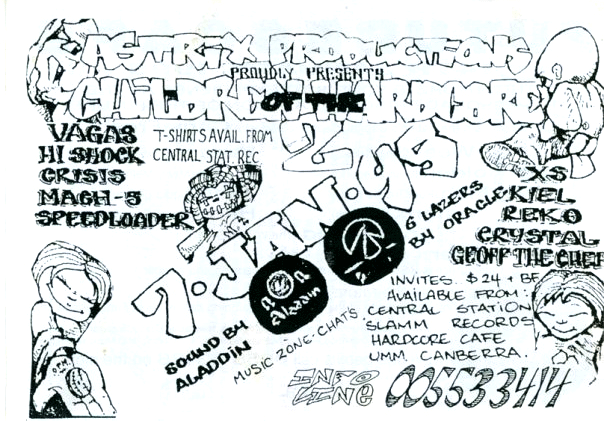 ASTRIX PRODUCTIONS
PROUDLY PRESENTS
CHILDREN OF THE HARDCORE
2
VAGAS
HI SHOCK
CRISIS
MACH-5
SPEEDLOADER
T-SHIRTS AVAIL. FROM
CENTRAL STAT. REC
7·JAN·95
6 LAZERS
BY ORACLE
XS
KIEL
REKO
CRYSTAL
GEOFF THE CHEF
Aladdin
SOUND BY
ALADDIN
MUSIC ZONE·CHAT'S
INVITES. $24 + BF
AVAILABLE FROM:
CENTRAL STATION
SLAMM RECORDS
HARDCORE CAFE
UMM. CANBERRA.
INFO
LINE 005533414